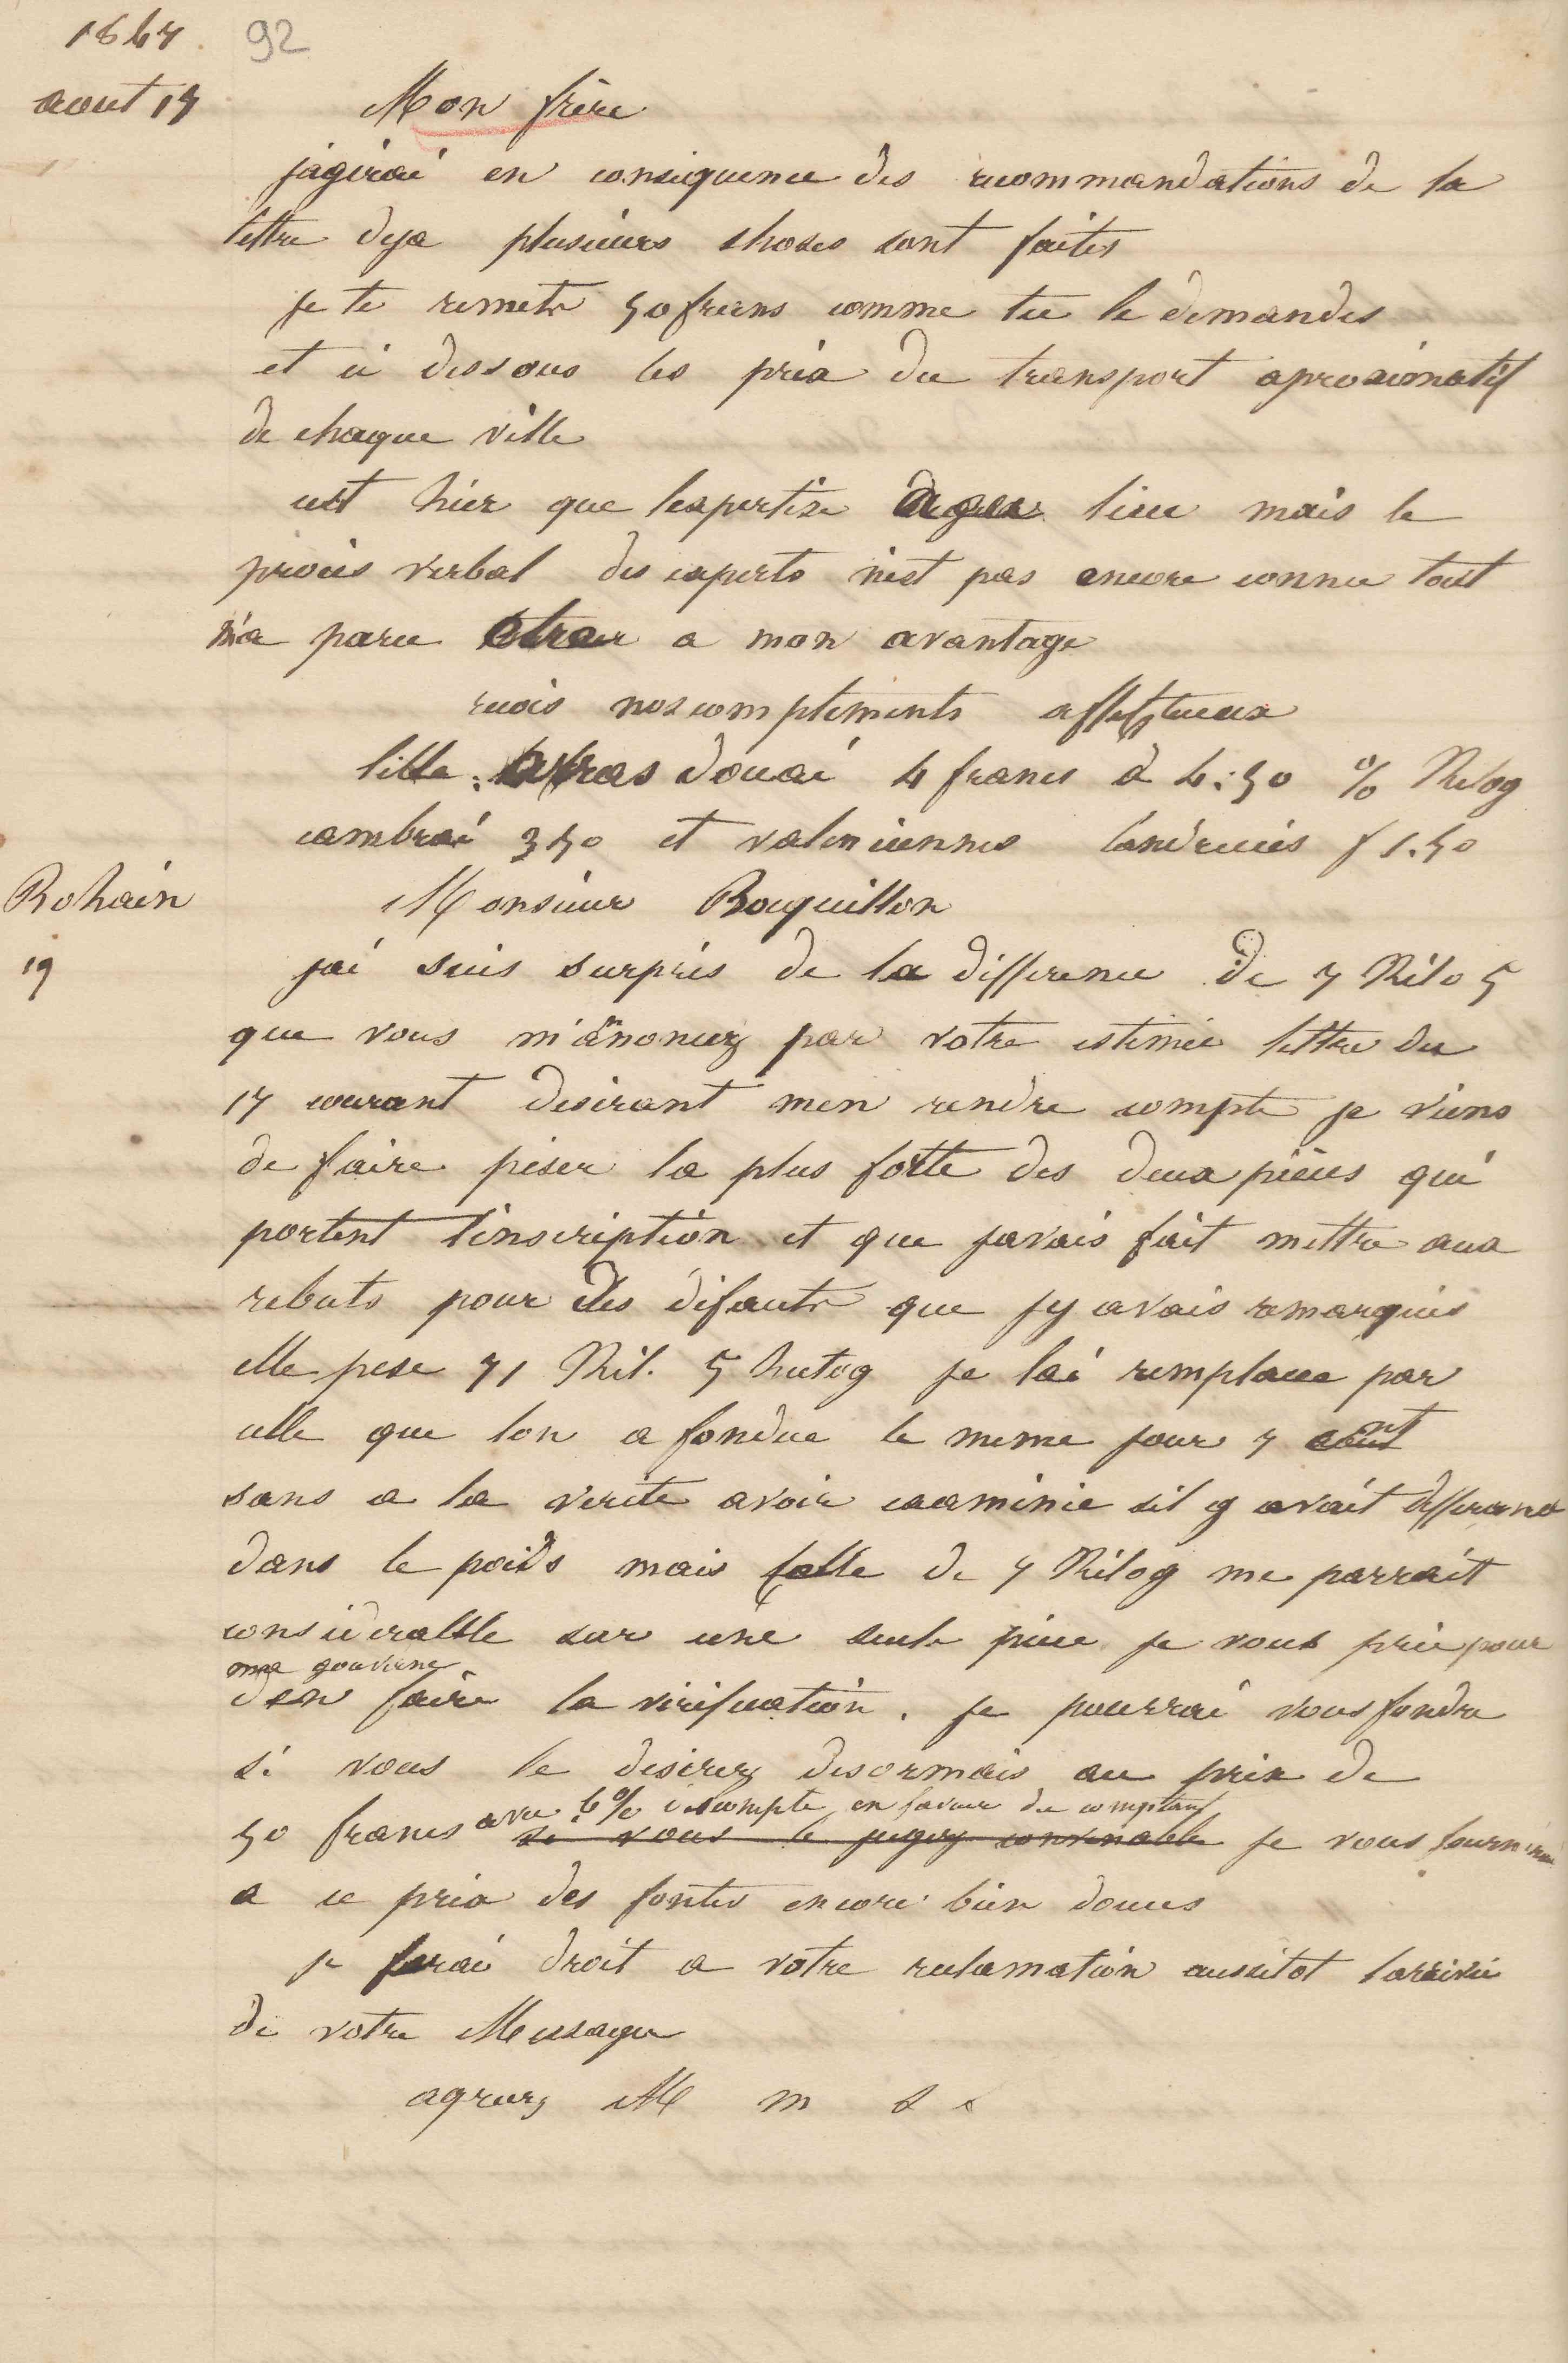 1847. 92
aout 19
Mon frère
jagirai en consequence des recommandations de ta
lettre deja plusieurs choses sont faites
je te remets 50 francs comme tu le demandes
et ci dessous les prix du transport aproximatif
de chaque ville
cest hier que lexpertise a eu lieu mais le
procès verbal des experts n'est pas encore connu tout
m'a paru etre a mon avantage
recois nos compliments affectueux
lille, arras douai 4 francs à 4:50 % Kilog
cambrai 3 50 et valenciennes landrecies f 1.50
Bohain
Monsieur Bouquillon
19
jai suis surpris de la difference de 7 Kilo 5
que vous m'anoncez par votre estimée lettre du
17 courant desirant men rendre compte je viens
de faire peser la plus forte des deux pièces qui
portent l'inscription et que javais fait mettre aux
rebuts pour des défauts que jy avais remarqués
elle pese 71 Kil. 5 hectog je lai remplacee par
celle que lon a fondue le meme jour 7 aout
sans a la verite avoir examinée sil y avait differance
dans le poids mais celle de 7 Kilog me parrait
considerable sur une seule piece je vous prie pour
ma gouverne
den faire la vérification. je pourrai vous fondre
si vous le desirez desormais au prix de
avec 6% descompte en faveur du comptant
50 francs si vous le jugez convenable je vous fournirai
a ce prix des fontes encore bien douces
je ferai droit a votre reclamation aussitot larrivée
de votre Messager
agreez M m s